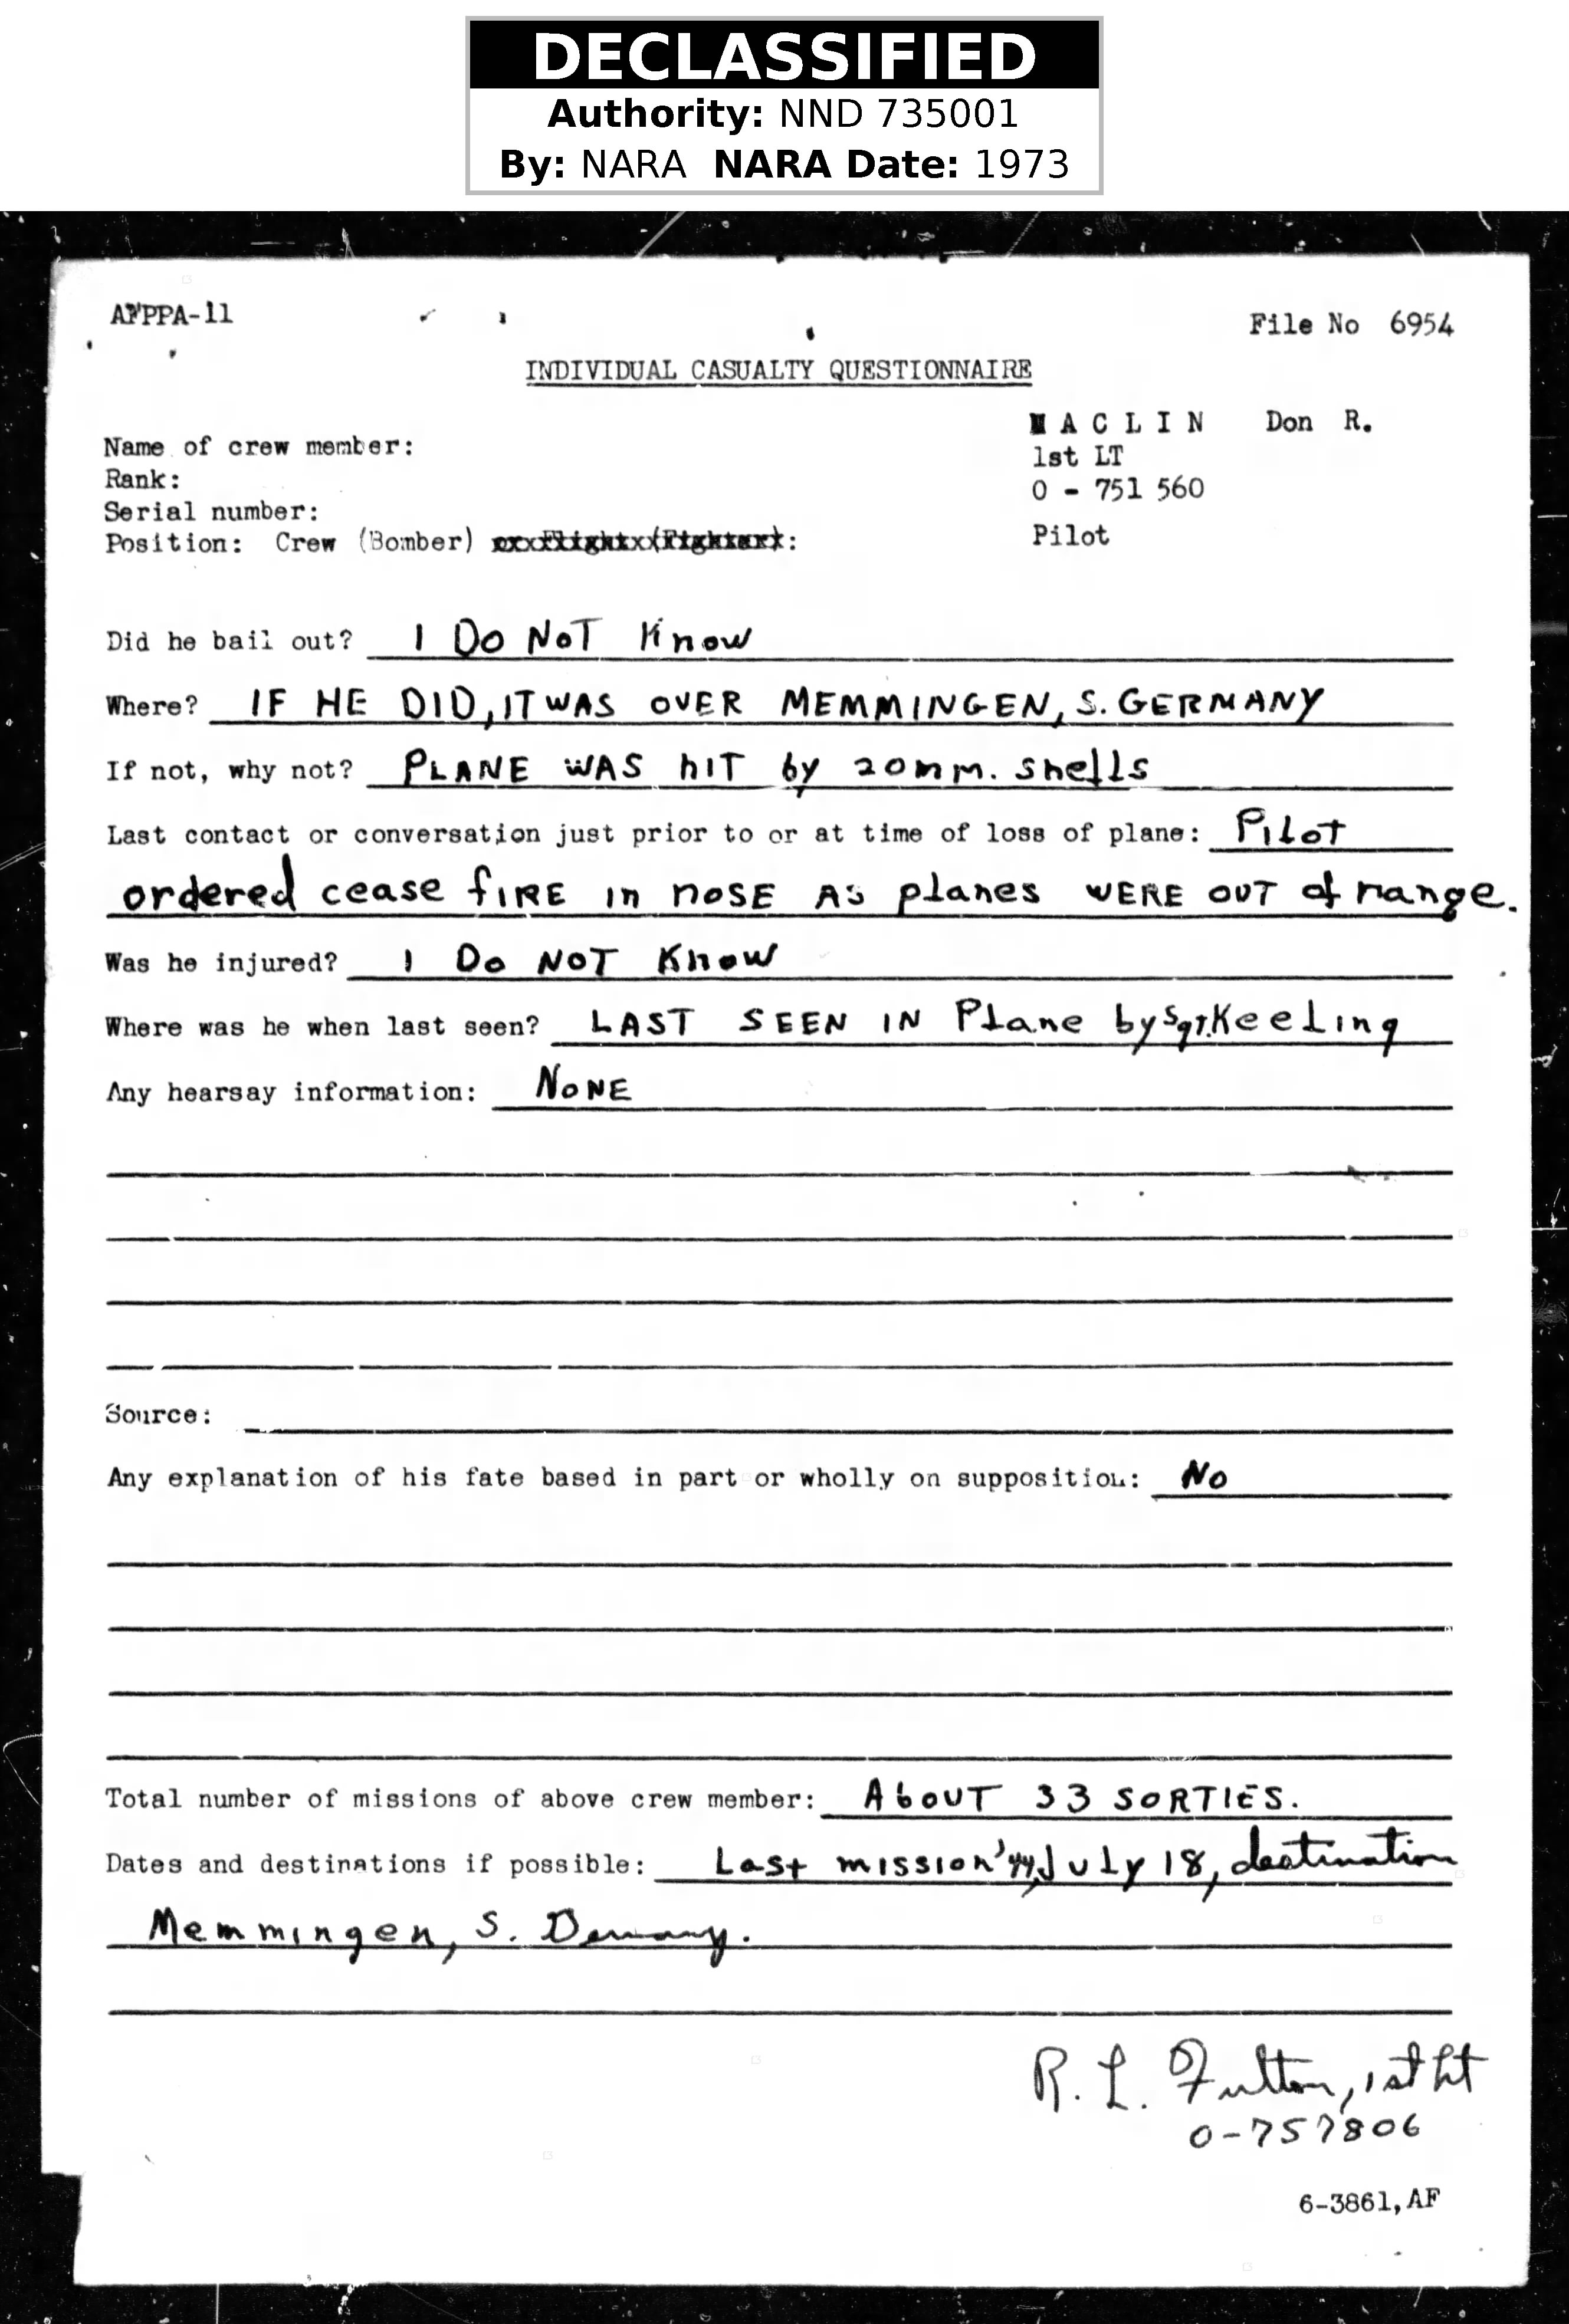 DECLASSIFIED
Authority: NND 735001
By: NARA NARA Date: 1973
AFPPA-11
File No 6954
INDIVIDUAL CASUALTY QUESTIONNAIRE
Name of crew member: MACLIN Don R.
Rank: 1st LT
Serial number: 0 - 751 560
Position: Crew (Bomber) : Pilot
Did he bail out? I Do NoT Know
Where? IF HE DID, IT WAS OVER MEMMINGEN, S. GERMANY
If not, why not? PLANE WAS hIT by 20mm. shells
Last contact or conversation just prior to or at time of loss of plane: PILoT
ordered cease fIRE in nOSE AS planes WERE OUT of range.
Was he injured? I Do NOT Know
Where was he when last seen? LAST SEEN IN Plane by Sgt. Keeling
Any hearsay information: NONE
Source:
Any explanation of his fate based in part or wholly on supposition: No
Total number of missions of above crew member: AboUT 33 SORTIES.
Dates and destinations if possible: Last mission '44, July 18, destination
Memmingen, S. Germany.
R. L. Fulton, 1st Lt
0-757806
6-3861, AF